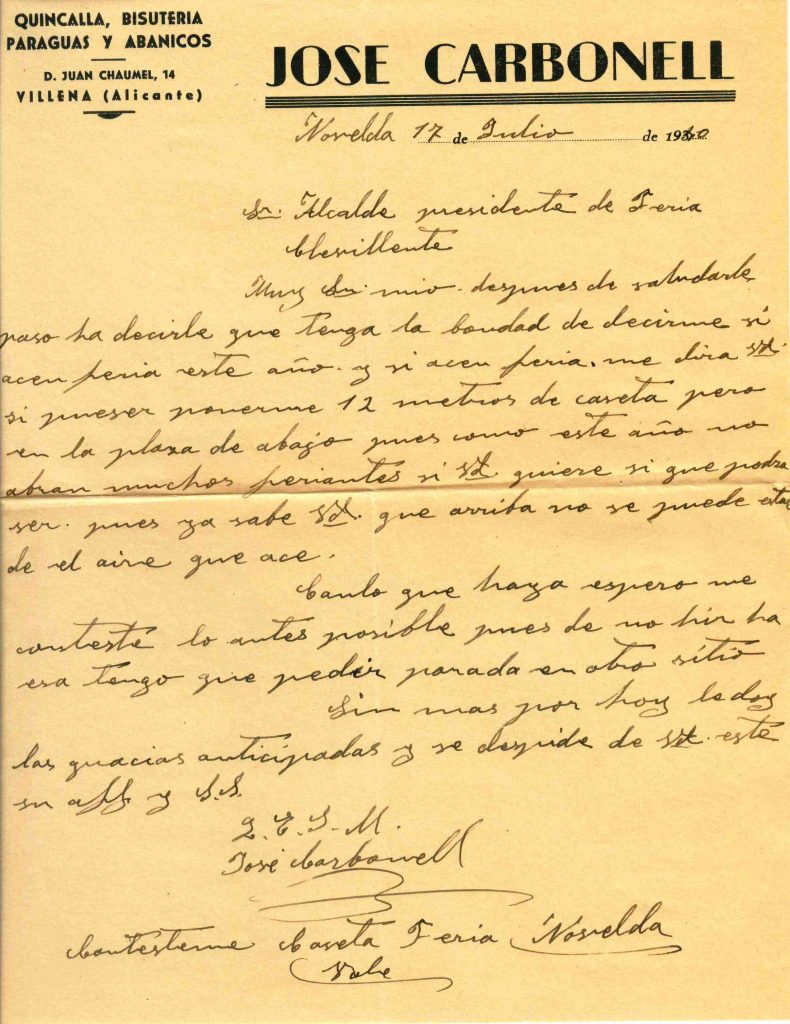 QUINCALLA, BISUTERIA
PARAGUAS Y ABANICOS
D. JUAN CHAUMEL, 14
VILLENA (Alicante)
JOSE CARBONELL
Novelda 17 de Julio de 1940
Sr. Alcalde presidente de Feria
Clevillente
Muy Sr. mio. despues de saludarle
paso ha decirle que tenga la bondad de decirme si
acen feria este año. y si acen feria. me dira Vd.
si pueser ponerme 12 metros de caseta pero
en la plaza de abajo pues como este año no
abran muchos feriantes si Vd. quiere si que podra
ser. pues ya sabe Vd. que arriba no se puede estar
de el aire que ace.
que haya espero me
conteste lo antes posible pues de no hir ha
esa tengo que pedir parada en otro sitio
Sin mas por hoy le doy
las gracias anticipadas y se despide de Vd. este
su aff y S.S.
Q.E.S.M.
José Carbonell
Contesteme Caseta Feria Novelda
Vale